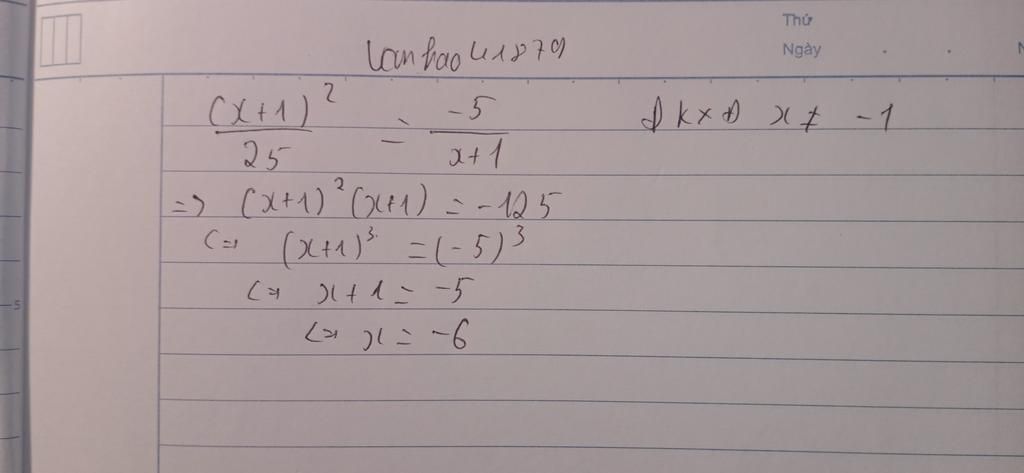 Thứ
Ngày . . N
lanhao41879
(x+1)² / 25 = -5 / x+1 ĐKXĐ x ≠ -1
=> (x+1)² (x+1) = -125
<=> (x+1)³ = (-5)³
<=> x+1 = -5
<=> x = -6
5